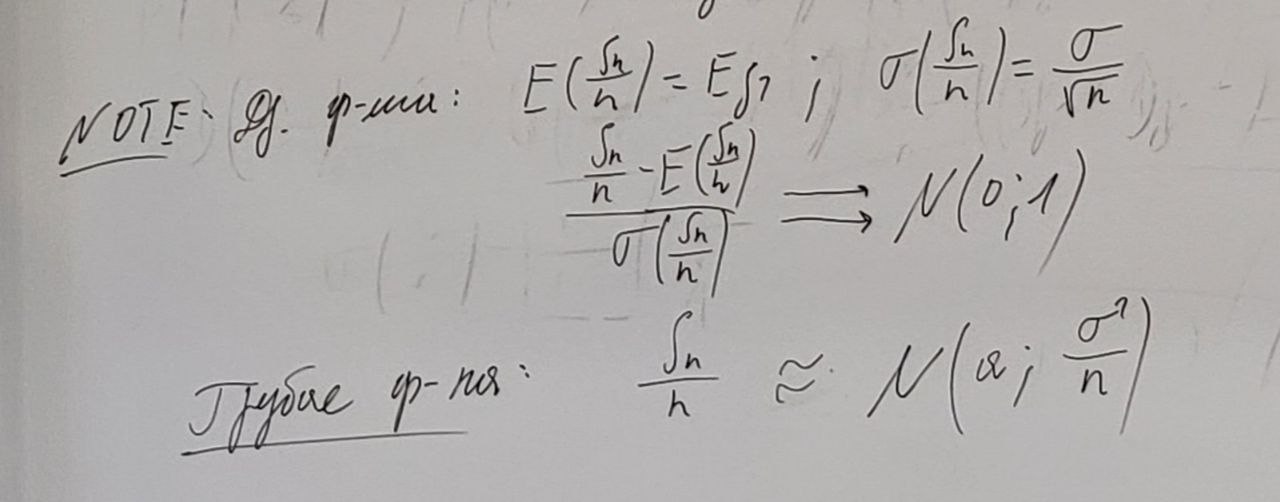 NOTE: Др. ф-ми: E(Sn/n) = Eξ1 ; σ(Sn/n) = σ/√n
(Sn/n - E(Sn/n)) / σ(Sn/n) ⇒ N(0;1)
Грубая ф-ля: Sn/n ≈ N(a; σ²/n)